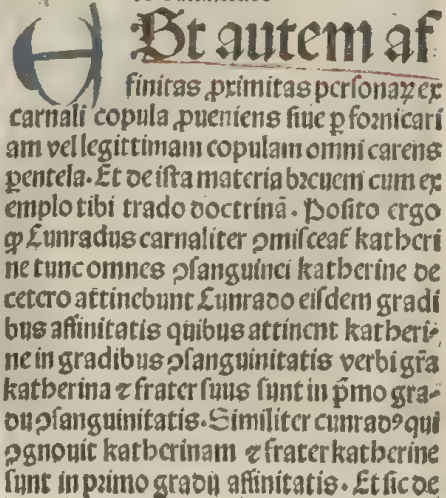 Est autem af
finitas ꝓximitas personaꝝ ex
carnali copula ꝓueniens siue ꝑ fornicari
am vel legittimam copulam omni carens
ꝑentela. Et de ista materia breuem cum ex
emplo tibi trado doctrinā. Posito ergo
ꝙ Cunradus carnaliter ꝯmisceat᷑ katheri
ne tunc omnes ꝯsanguinei katherine de
cetero attinebunt Cunrado eisdem gradi
bus affinitatis quibus attinent katheri-
ne in gradibus ꝯsanguinitatis verbi gr̄a
katherina ⁊ frater suus sunt in p̄mo gra-
du ꝯsanguinitatis. Similiter cunradꝰ qui
ꝯgnouit katherinam ⁊ frater katherine
sunt in primo gradu affinitatis. Et sic de